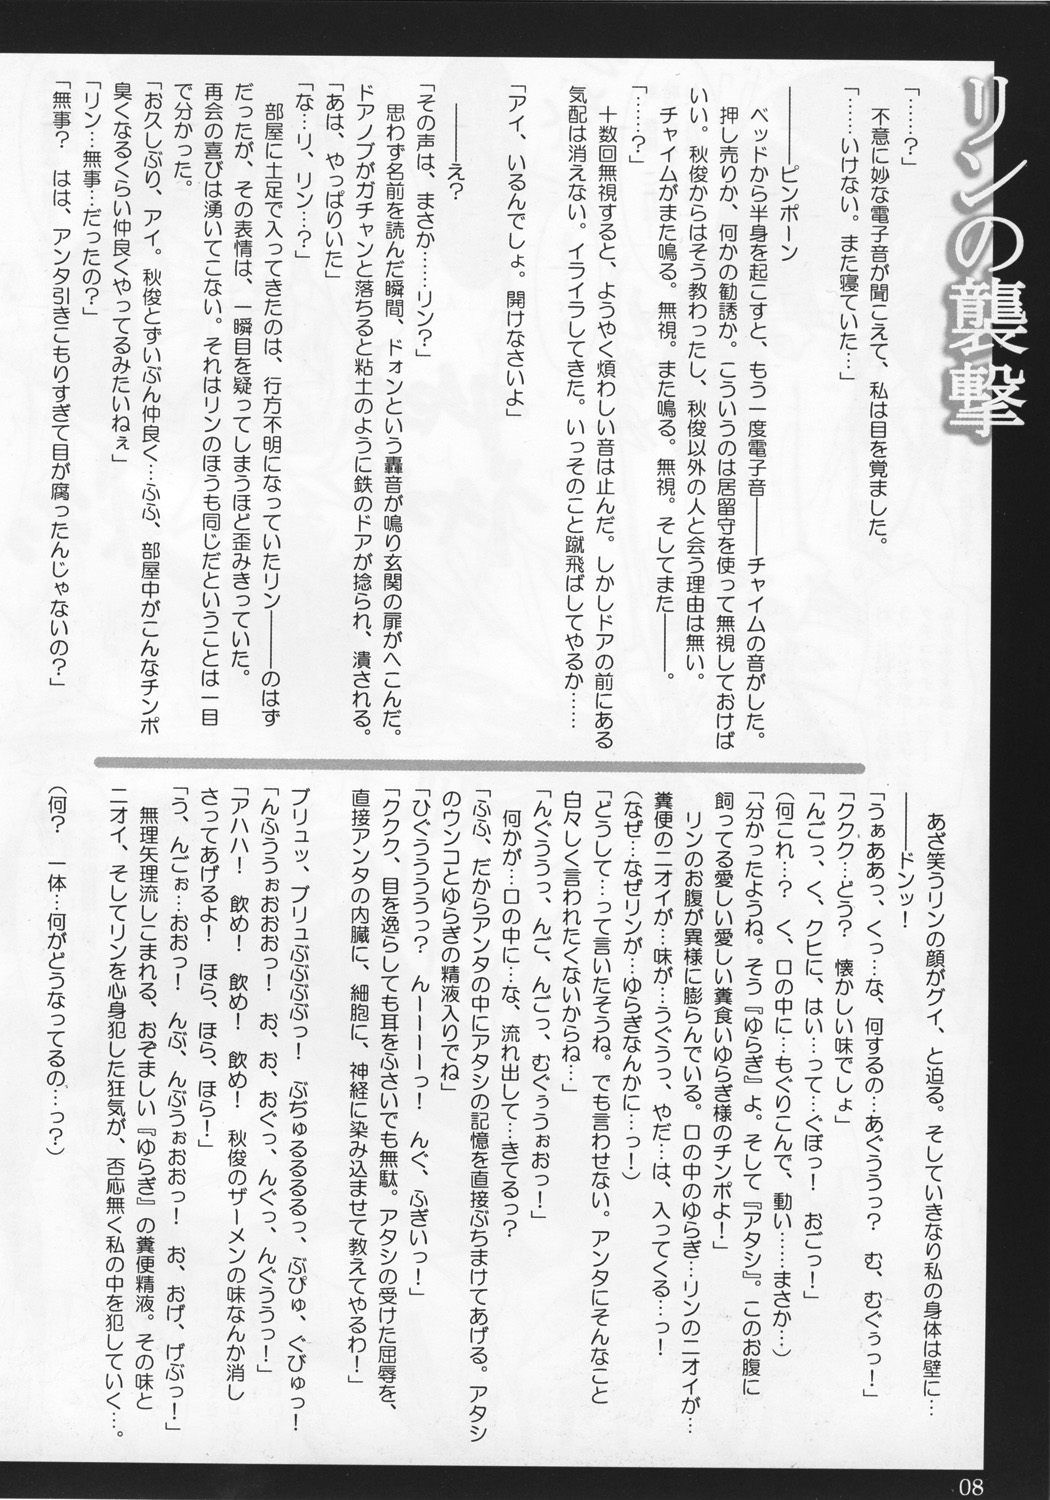 リンの襲撃
「……?」
不意に妙な電子音が聞こえて、私は目を覚ました。
「……いけない。また寝ていた…」
――――ピンポーン
ベッドから半身を起こすと、もう一度電子音――――チャイムの音がした。
押し売りか、何かの勧誘か。こういうのは居留守を使って無視しておけば
いい。秋俊からはそう教わったし、秋俊以外の人と会う理由は無い。
チャイムがまた鳴る。無視。また鳴る。無視。そしてまた――――。
「……?」
十数回無視すると、ようやく煩わしい音は止んだ。しかしドアの前にある
気配は消えない。イライラしてきた。いっそのこと蹴飛ばしてやるか……
「アイ、いるんでしょ。開けなさいよ」
――――え?
「その声は、まさか……リン?」
思わず名前を読んだ瞬間、ドォンという轟音が鳴り玄関の扉がへこんだ。
ドアノブがガチャンと落ちると粘土のように鉄のドアが捻られ、潰される。
「あは、やっぱりいた」
「な…リ、リン…?」
部屋に土足で入ってきたのは、行方不明になっていたリン――――のはず
だったが、その表情は、一瞬目を疑ってしまうほど歪みきっていた。
再会の喜びは湧いてこない。それはリンのほうも同じだということは一目
で分かった。
「お久しぶり、アイ。秋俊とずいぶん仲良く…ふふ、部屋中がこんなチンポ
臭くなるくらい仲良くやってるみたいねぇ」
「リン…無事…だったの?」
「無事? はは、アンタ引きこもりすぎて目が腐ったんじゃないの?」
あざ笑うリンの顔がグイ、と迫る。そしていきなり私の身体は壁に…
――――ドンッ!
「うぁああっ、くっ…な、何するの…あぐううっ? む、むぐぅっ!」
「ククク…どう? 懐かしい味でしょ」
「んごっ、く、クヒに、はい…って…ぐぼっ! おごっ!」
(何これ…? く、口の中に…もぐりこんで、動い……まさか…)
「分かったようね。そう『ゆらぎ』よ。そして『アタシ』。このお腹に
飼ってる愛しい愛しい糞食いゆらぎ様のチンポよ!」
リンのお腹が異様に膨らんでいる。口の中のゆらぎ…リンのニオイが…
糞便のニオイが…味が…うぐうっ、やだ…は、入ってくる…っ!
(なぜ…なぜリンが…ゆらぎなんかに…っ!)
「どうして…って言いたそうね。でも言わせない。アンタにそんなこと
白々しく言われたくないからね…」
「んぐううっ、んご、んごっ、むぐぅうぉおっ!」
何かが…口の中に…な、流れ出して…きてるっ?
「ふふ、だからアンタの中にアタシの記憶を直接ぶちまけてあげる。アタシ
のウンコとゆらぎの精液入りでね」
「ひぐうううっ? んーーーーっ! んぐ、ふぎいっ!」
「ククク、目を逸らしても耳をふさいでも無駄。アタシの受けた屈辱を、
直接アンタの内臓に、細胞に、神経に染み込ませて教えてやるわ!」
ブリュッ、ブリュぶぶぶぶっ! ぶぢゅるるるるっ、ぶぴゅ、ぐびゅっ!
「んふううぉおおおっ! お、お、おぐっ、んぐっ、んぐううっ!」
「アハハ! 飲め! 飲め! 飲め! 秋俊のザーメンの味なんか消し
さってあげるよ! ほら、ほら、ほら!」
「う、んごぉ…おおっ! んぶ、んぶうぉおおっ! お、おげ、げぶっ!」
無理矢理流しこまれる、おぞましい『ゆらぎ』の糞便精液。その味と
ニオイ、そしてリンを心身犯した狂気が、否応無く私の中を犯していく…。
(何? 一体…何がどうなってるの…っ?)
08